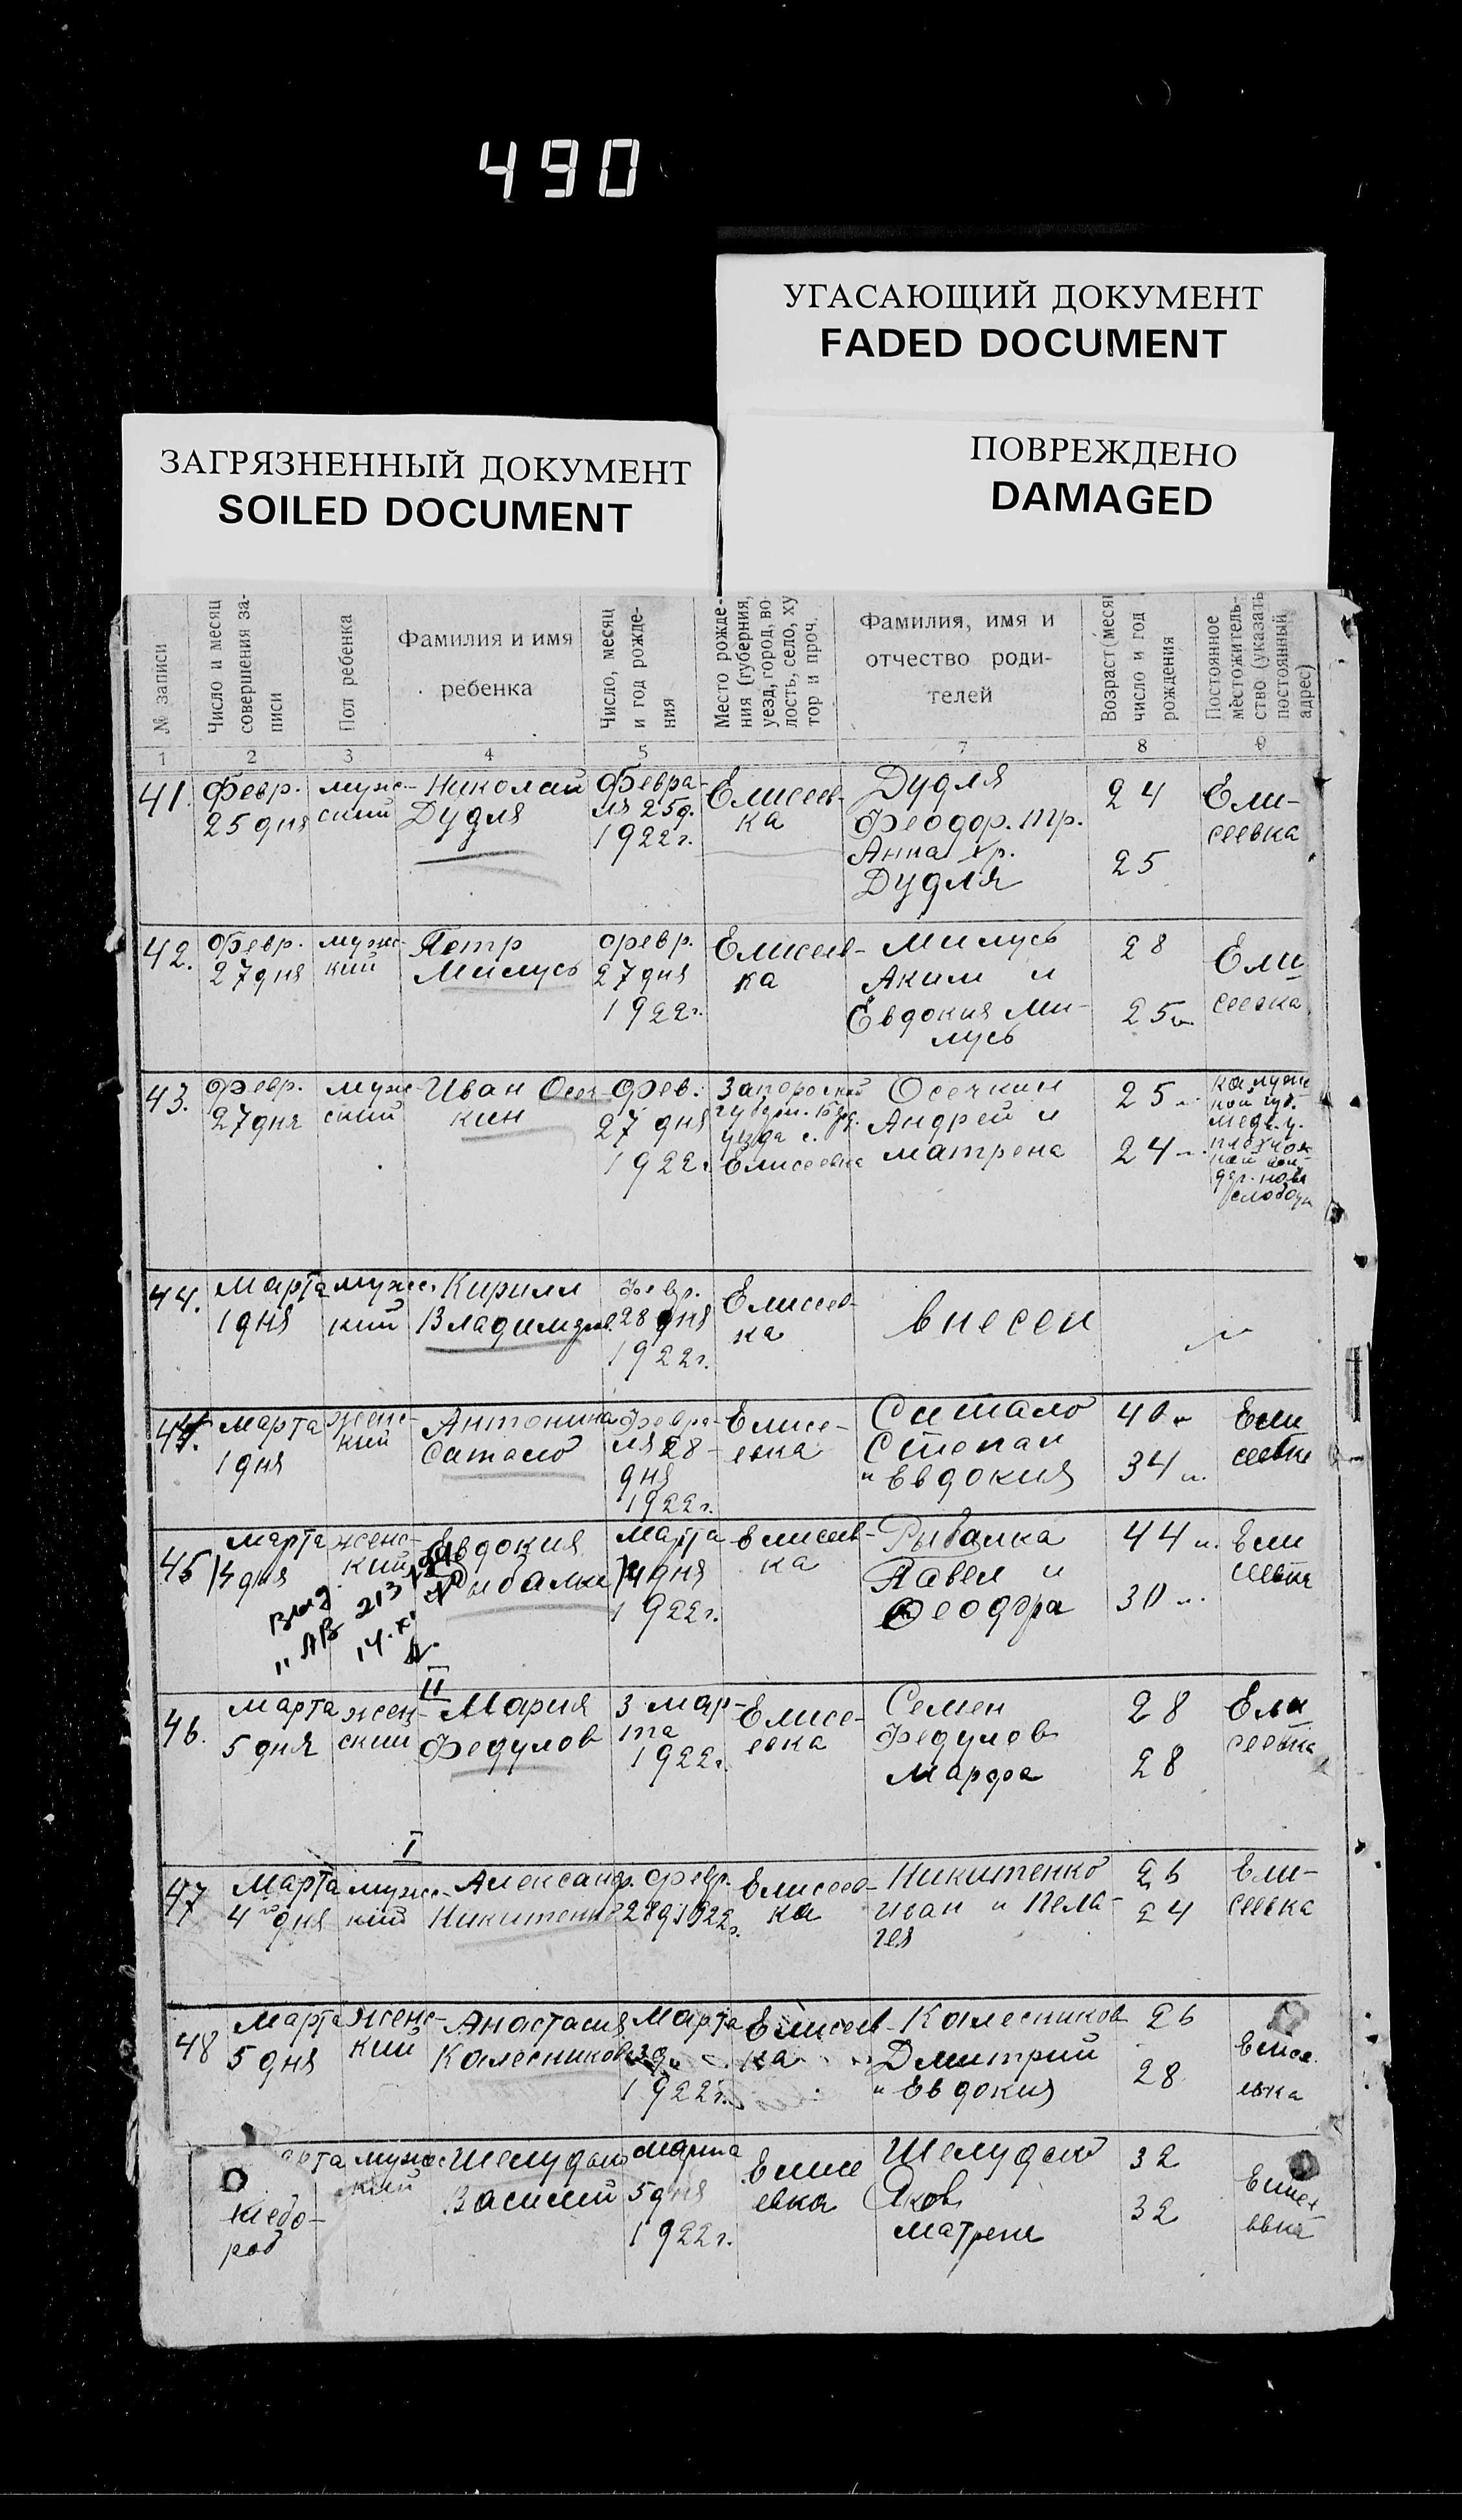 490
УГАСАЮЩИЙ ДОКУМЕНТ
FADED DOCUMENT
ЗАГРЯЗНЕННЫЙ ДОКУМЕНТ
SOILED DOCUMENT
ПОВРЕЖДЕНО
DAMAGED
№ записи
Число и месяц
совершения за-
писи
Пол ребенка
Фамилия и имя
ребенка
Число, месяц
и год рожде-
ния
Место рожде-
ния (губерния,
уезд, город, во
лость, село, ху
тор и проч.
Фамилия, имя и
отчество роди-
телей
Возраст (меся
число и год
рождения
Постоянное
местожитель-
ство (указать
постоянный
адрес)
1
2
3
4
5
7
8
9
41.
Февр.
25 дня
мужс-
ский
Николай
Дудля
Февра-
ля 25д.
1922г.
Елисеев-
ка
Дудля
Феодор. тр.
Анна хр.
Дудля
24
25
Ели-
сеевка
42.
Февр.
27 дня
мужс-
кий
Петр
Милусь
февр.
27 дня
1922г.
Елисеев-
ка
Милусь
Аким и
Евдокия Ми-
лусь
28
25
Ели
сеевка
43.
Февр.
27 дня
муж-
ский
Иван Осеч-
кин
Фев.
27 дня
1922г.
Запорожской
губерн.
уезда с.
Елисеевка
Осечкин
Андрей и
матрена
25
24
калуж
кой губ.
слобода
44.
Марта
1 дня
мужс.
кий
Кирилл
Владимиров.
Февр.
28 дня
1922г.
Елисеев-
ка
внесен
44.
марта
1 дня
женс-
кий
Антонина
Ситало
Февра-
ля 28-
дня
1922г.
Елисе-
евка
Ситало
Степан
и Евдокия
40
34
Ели
сеевка
45
марта
4 дня
женс-
кий
Евдокия
Рыбалка
марта
4 дня
1922г.
Елисеев-
ка
Рыбалка
Павел и
Феодора
44
30
Ели
сеевка
Выд.
АВ 213
14.X
II
46.
марта
5 дня
жен-
ский
Мария
Федулов
3 мар-
та
1922г.
Елисе-
евка
Семен
Федулов
Марфа
28
28
Ели
сеевка
I
47
Марта
4го дня
мужс-
кий
Александр.
Никитенко
февр.
28д 1922г.
Елисеев-
ка
Никитенко
иван и Пела-
гея
26
24
Ели-
сеевка
48
Марта
5 дня
женс-
кий
Анастасия
Колесников
Марта
3д.
1922г.
Елисеев-
ка
Колесников
Дмитрий
и Евдокия
26
28
Елисе
евка
арта
мужс
кий
Шелудько
Василий
марта
5 дня
1922г.
Елисе
евка
Шелудько
Яков
матрена
32
32
Елисе
евка
недо-
род